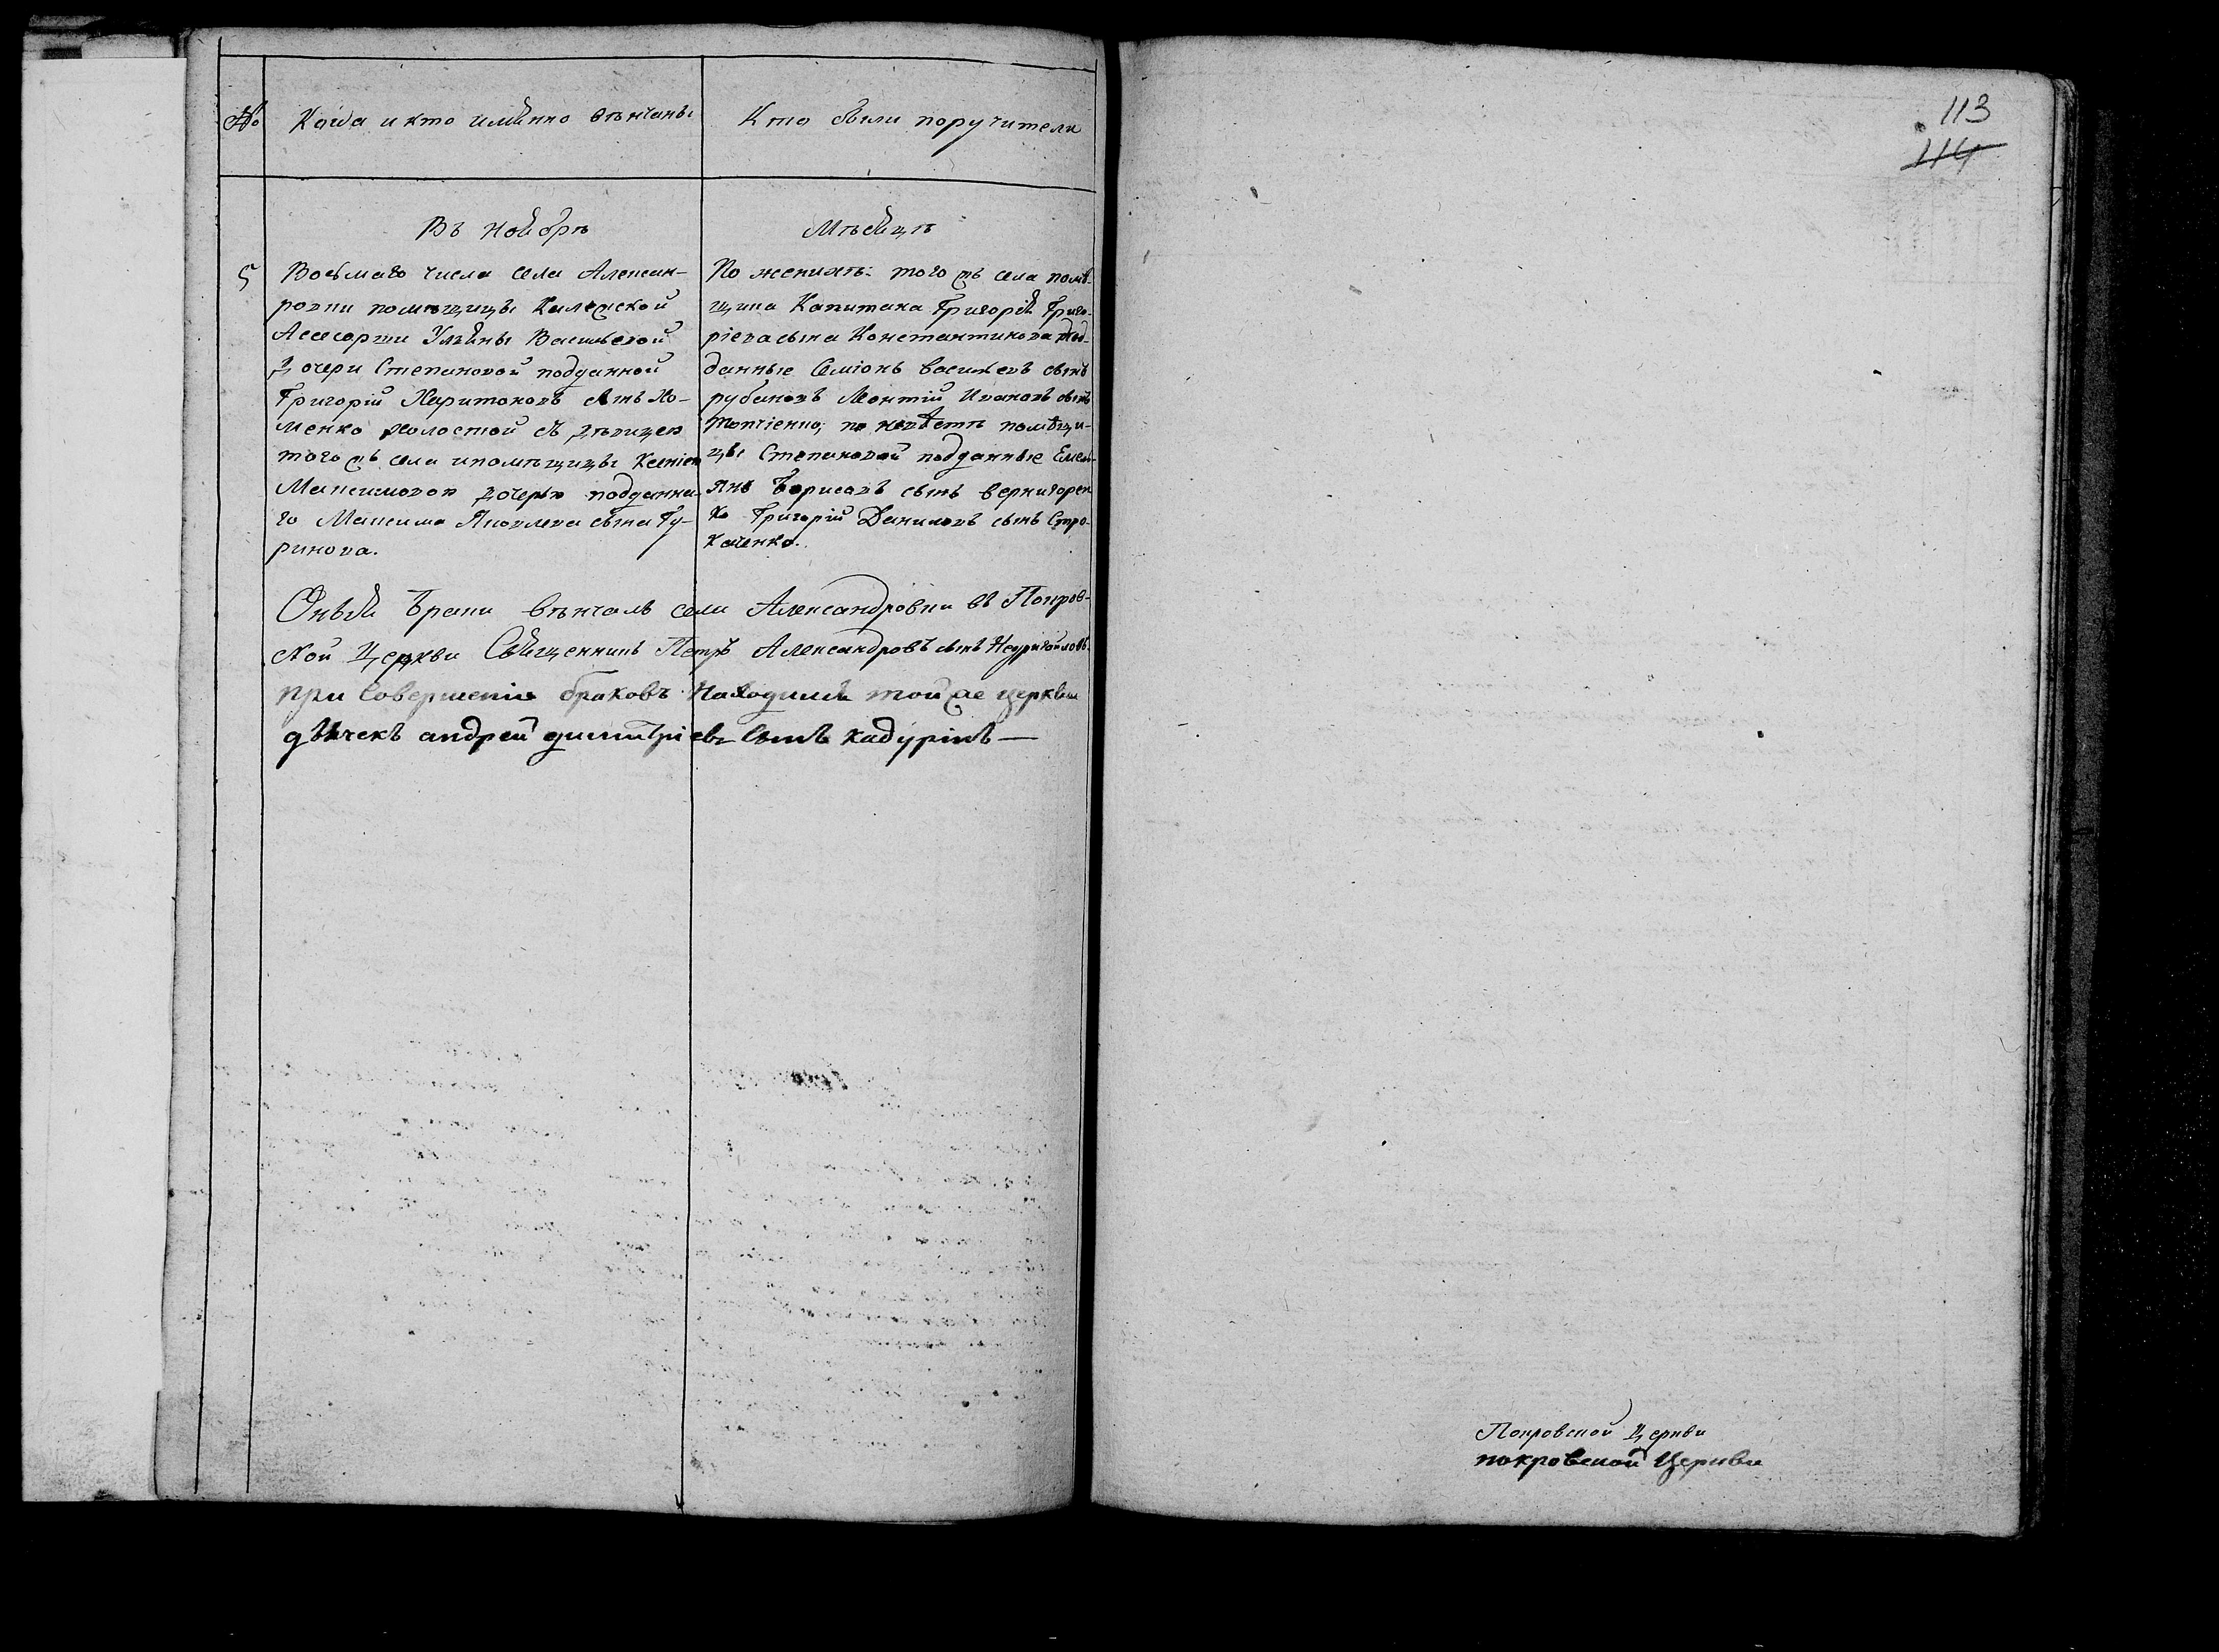 № Когда и кто имянно вѣнчаны
Кто были поручители
Въ ноябрѣ
Мѣсяцѣ
5 Восмаго числа села Алексан-
ровки помѣщицы Калежской
Асесорши Ульяны Васильевой
дочери Степановой подданной
Григорій Харитоновъ сынъ Хо-
менко холостой съ дѣвицею
тогожъ села ипомѣщицы Ксеніею
Максимовою дочерью поддана-
го Максима Яковлева сына Гу-
ринова.
По женихѣ: того жъ села помѣ-
щика Капитана Григорія Григо-
ріева сына Константинова под-
данные Семіонъ василевъ сынъ
рубановъ Леонтій Ивановъ сынъ
по невѣстѣ помѣщи-
цы Степановой подданные Емель-
янъ Борисовъ сынъ вернигорен
ко Григорій Даниловъ сынъ Стро-
каченко.
Оныя Браки вѣнчалъ села Александровки въ Покров-
ской Церкви Священникъ Петръ Александровъ сынъ
при совершеніи браковъ находился той же церкви
дьячекъ андрей димитріевъ сынъ кадурінъ —
113
114
Покровской Церкви
покровской Церкви